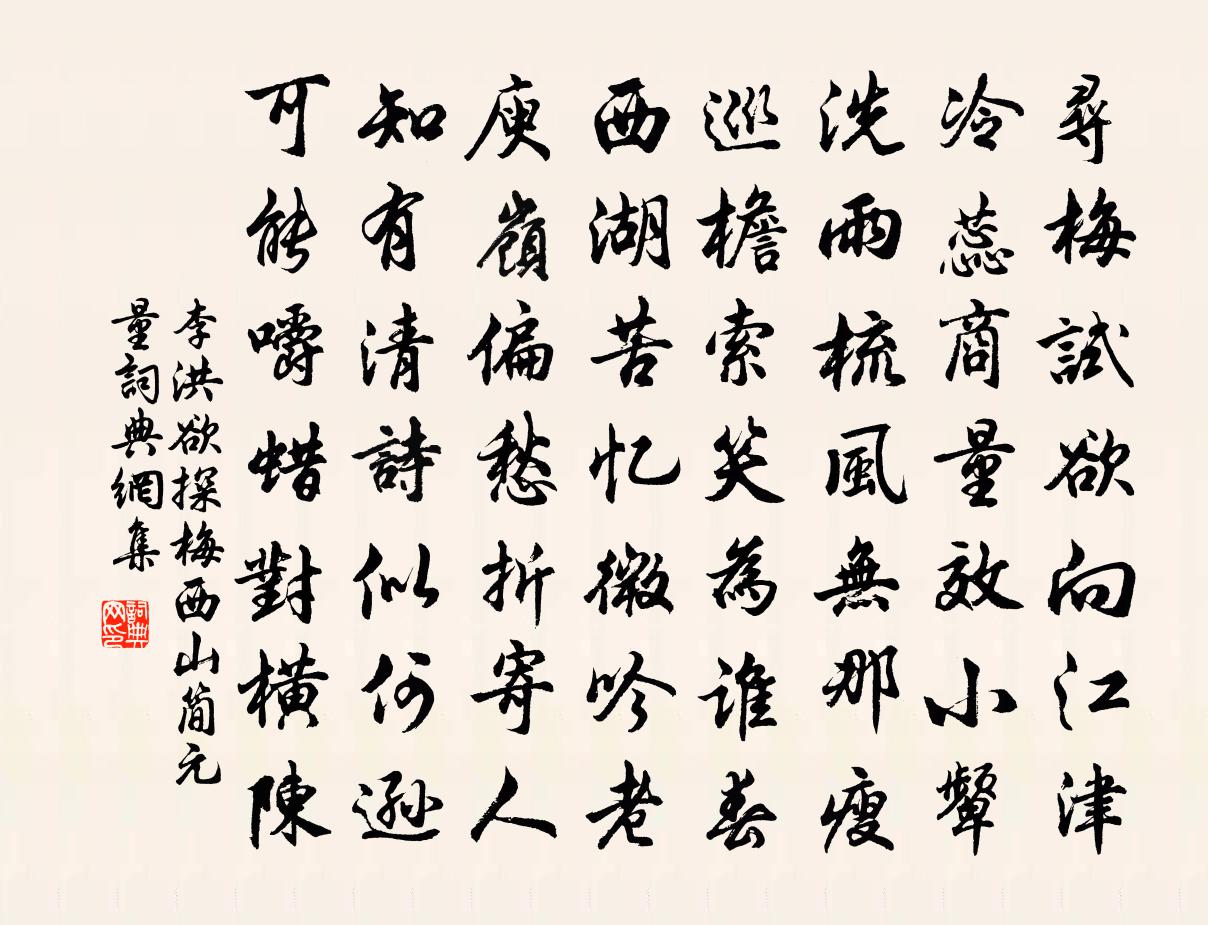 尋梅試欲向江津
冷蕊商量效小顰
洗雨梳風無那瘦
巡檐索笑為誰春
西湖苦忆微吟老
庾嶺偏愁折寄人
知有清詩似何遜
可能嚼蜡對橫陳
李洪欲探梅西山簡元
量詞典網集
詞典网印